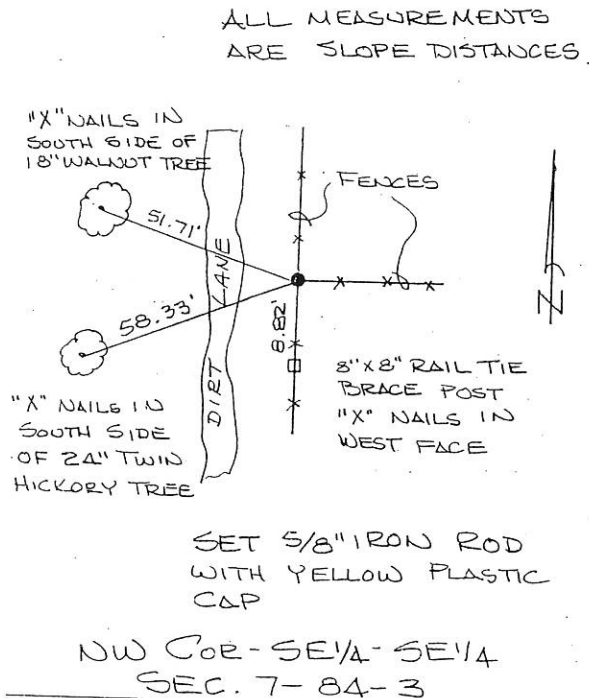 ALL MEASUREMENTS
ARE SLOPE DISTANCES
"X" NAILS IN
SOUTH SIDE OF
18" WALNUT TREE
FENCES
51.71'
58.33'
DIRT LANE
8.82'
N
8" X 8" RAIL TIE
BRACE POST
"X" NAILS IN
WEST FACE
"X" NAILS IN
SOUTH SIDE
OF 24" TWIN
HICKORY TREE
SET 5/8" IRON ROD
WITH YELLOW PLASTIC
CAP
NW COR - SE 1/4 - SE 1/4
SEC. 7-84-3